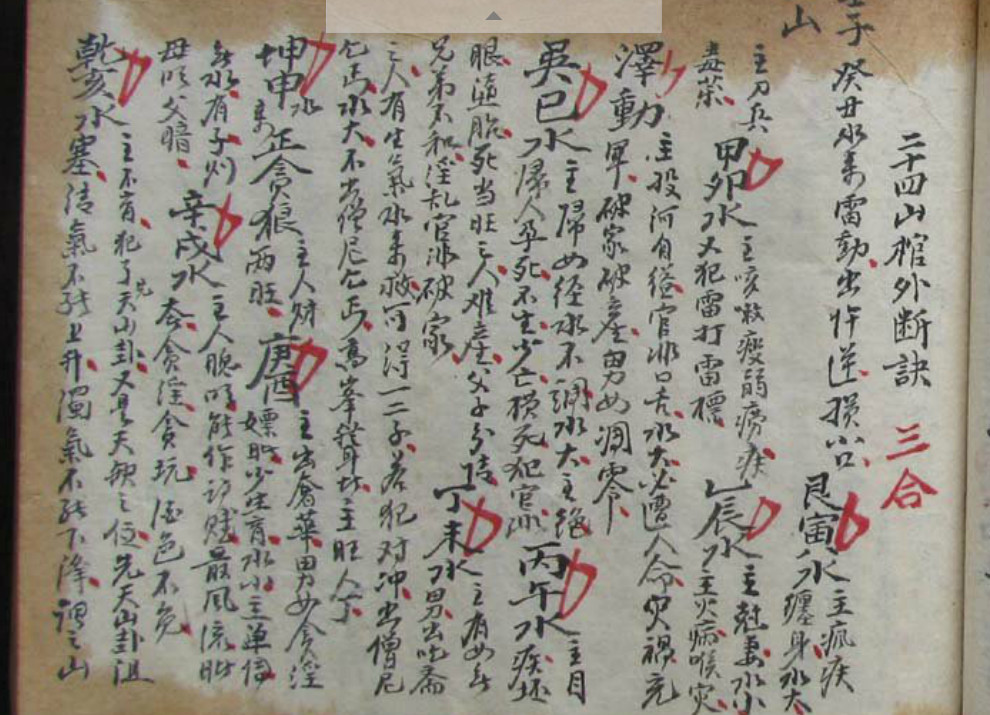 壬子
山
二十四山棺外断訣 三合
癸丑水來雷動出忤逆損小口 艮寅水 主瘋疾
纏身水大
主刀兵 甲卯水 主咳嗽瘦弱癆疾 乙辰水 主尅妻水小
毒藥 又犯雷打雷標 主火病喉灾
澤動 主投河自縊官非口舌水大必遭人命灾禍充
軍破家破産男女凋零
巽巳水 主婦女経水不調水大主絶 丙午水 主目
婦人孕死不生少亡横死犯官非 疾坯
眼墮胎死当旺三人难産父子分離 丁未水 主有女無
兄弟不和淫乱官非破家 男出吃斋
主人有生氣水來救可得一二子若犯对冲出僧尼
乞丐水大不出僧尼乞丐高峯聳起主旺人丁
坤申水來 正貪狼 主人财两旺 庚酉 主出奢華男女貪淫
嫖 少生育水小主单傳
無水有子 辛戌水 主人聰明能作詩賦最風流
母 父暗 貪淫貪玩酒色不免
乾亥水 主不育犯了天山卦又是天 之位先天山卦
塞结氣不能上升濁氣不能下降謂之山